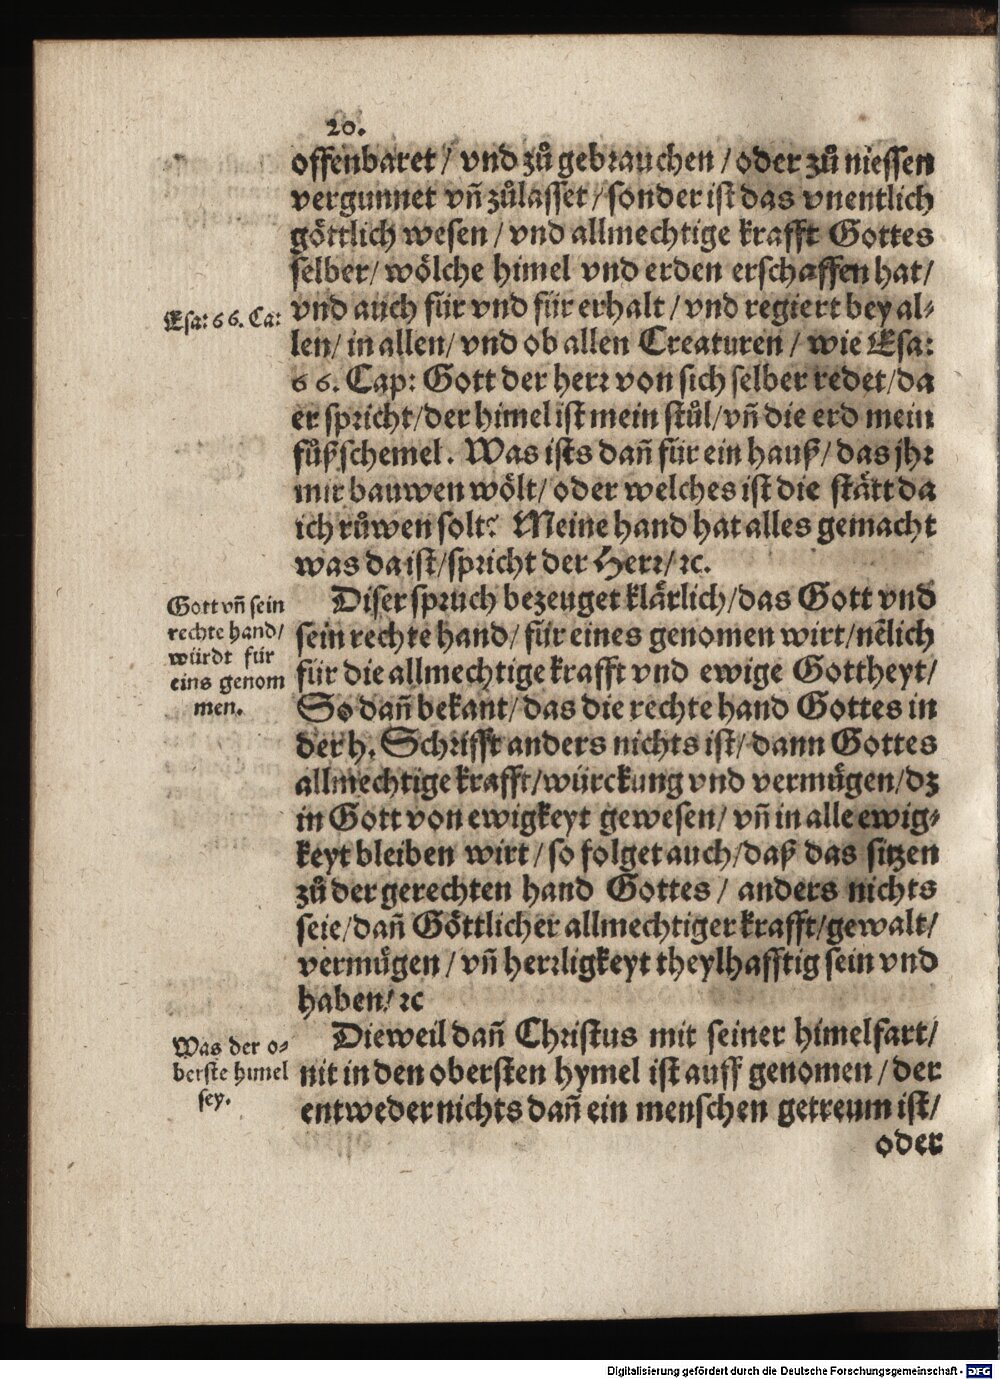 20.
offenbaret / vnd zů gebrauchen / oder zů niessen
vergunnet vñ zůlasset / sonder ist das vnentlich
göttlich wesen / vnd allmechtige krafft Gottes
selber / wölche himel vnd erden erschaffen hat /
Esa: 66. Ca:
vnd auch für vnd für erhalt / vnd regiert bey al-
len / in allen / vnd ob allen Creaturen / wie Esa:
66. Cap: Gott der herr von sich selber redet / da
er spricht / der himel ist mein stůl / vñ die erd mein
fůßschemel. Was ists dañ für ein hauß / das jhr
mir bauwen wölt / oder welches ist die stätt da
ich růwen solt? Meine hand hat alles gemacht
was da ist / spricht der Herr / ꝛc.
Gott vñ sein
rechte hand /
würdt für
eins genom
men.
Diser spruch bezeuget klärlich / das Gott vnd
sein rechte hand / für eines genomen wirt / nẽlich
für die allmechtige krafft vnd ewige Gottheyt /
So dañ bekant / das die rechte hand Gottes in
der h. Schrifft anders nichts ist / dann Gottes
allmechtige krafft / würckung vnd vermügen / dz
in Gott von ewigkeyt gewesen / vñ in alle ewig-
keyt bleiben wirt / so folget auch / daß das sitzen
zů der gerechten hand Gottes / anders nichts
seie / dañ Göttlicher allmechtiger krafft / gewalt /
vermügen / vñ herrligkeyt theylhafftig sein vnd
haben / ꝛc
Was der o-
berste himel
sey.
Dieweil dañ Christus mit seiner himelfart /
nit in den obersten hymel ist auff genomen / der
entweder nichts dañ ein menschen getreum ist /
oder
Digitalisierung gefördert durch die Deutsche Forschungsgemeinschaft - DFG